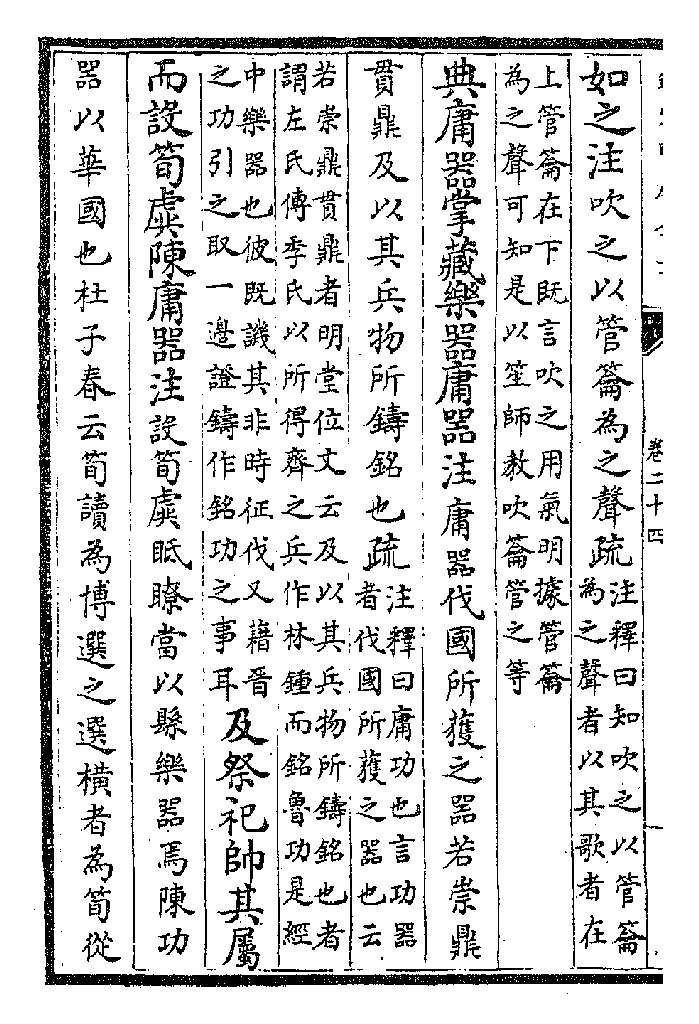 卷二十四
如之注吹之以管籥為之聲疏
注釋曰知吹之以管籥
為之聲者以其歌者在
上管籥在下既言吹之用氣明據管籥
為之聲可知是以笙師教吹籥管之等
典庸器掌藏樂器庸器注庸器伐國所獲之器若崇鼎
貫鼎及以其兵物所鑄銘也疏
注釋曰庸功也言功器
者伐國所獲之器也云
若崇鼎貫鼎者明堂位文云及以其兵物所鑄銘也者
謂左氏傳季氏以所得齊之兵作林鍾而銘魯功是經
中樂器也彼既譏其非時征伐又藉晉
之功引之取一邊證鑄作銘功之事耳
及祭祀帥其屬
而設筍虡陳庸器注設筍虡眡瞭當以縣樂器焉陳功
器以華國也杜子春云筍讀為博選之選橫者為筍從